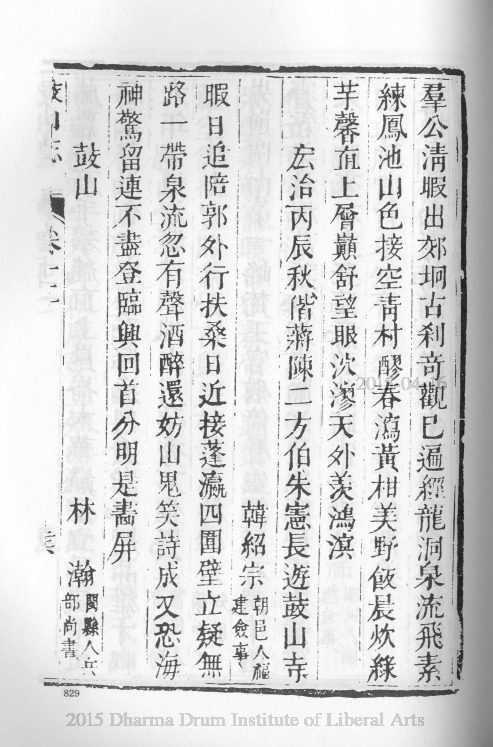 羣公淸暇出郊坰古刹奇觀巳遍經龍洞泉流飛素
練鳳池山色接空靑村醪春瀉黃柑美野飯晨炊綠
芋馨直上層巔舒望眼沈瀯天外羡鴻溟
宏治丙辰秋偕蔣陳二方伯朱憲長遊鼓山寺
韓紹宗朝邑人福建僉事
暇日追陪郭外行扶桑日近接蓬瀛四圍壁立疑無
路一帶泉流忽有聲酒醉還妨山鬼笑詩成又恐海
神驚留連不盡登臨興回首分明是畵屏
鼓山
林瀚閩縣人兵部尚書
鼓山志 卷十二
829
2015 Dharma Drum Institute of Liberal Arts